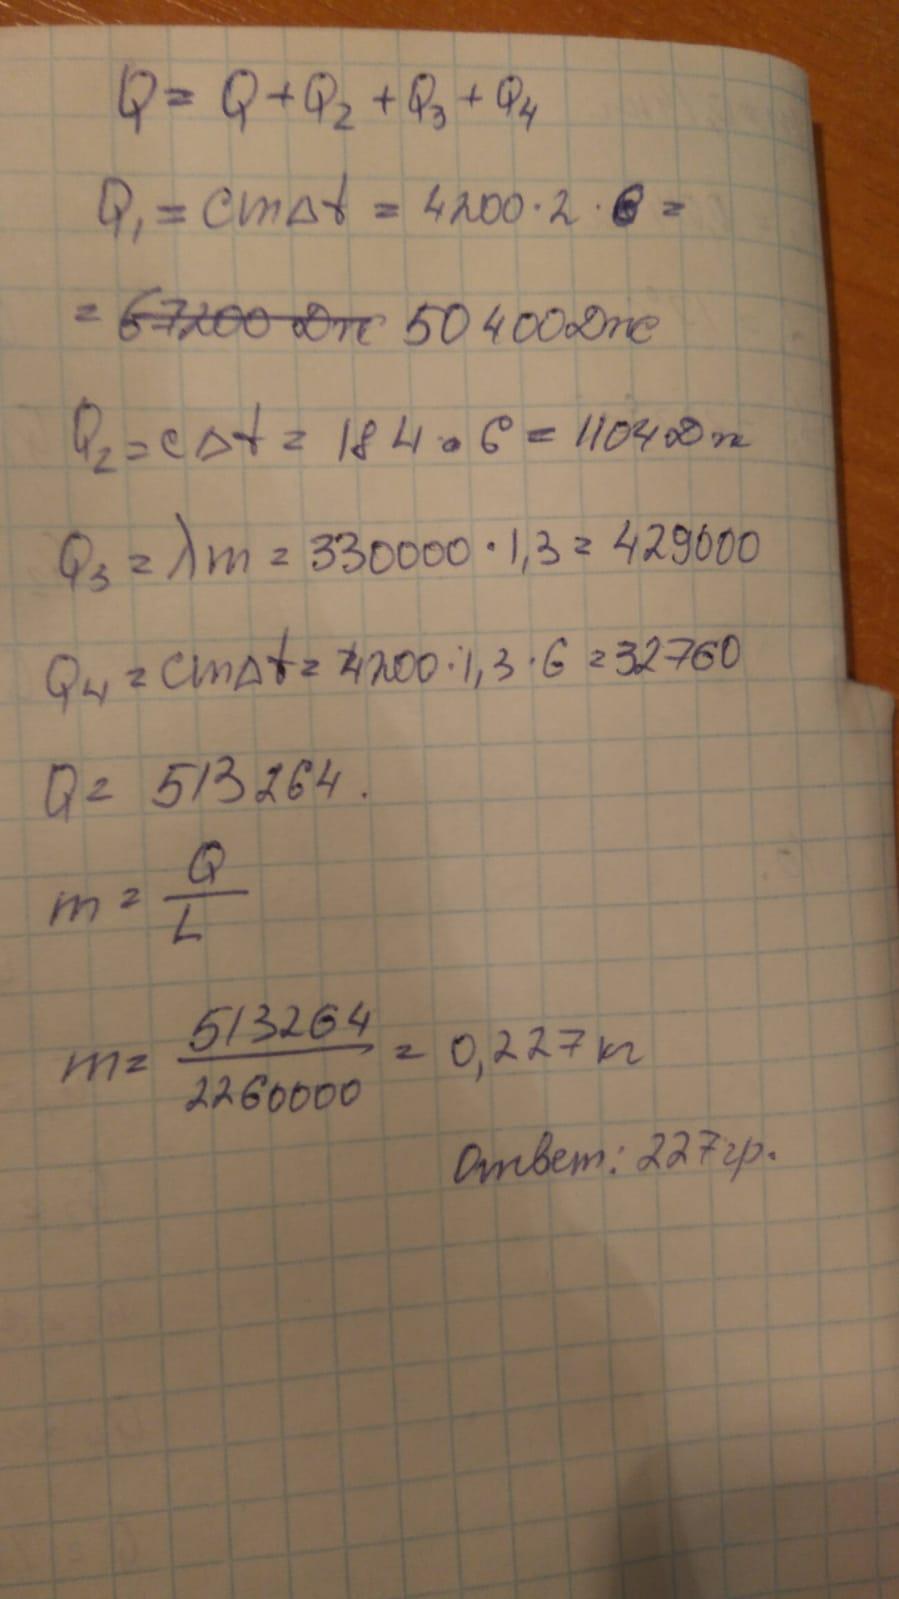 Q = Q + Q₂ + Q₃ + Q₄
Q₁ = cmΔt = 4200 · 2 · 6 =
= 67200 Дж 50400 Дж
Q₂ = cΔt = 184 · 6 = 1104 Дж
Q₃ = λm = 330000 · 1,3 = 429000
Q₄ = cmΔt = 4200 · 1,3 · 6 = 32760
Q = 513264.
m = Q / L
m = 513264 / 2260000 = 0,227 кг
Ответ: 227 гр.